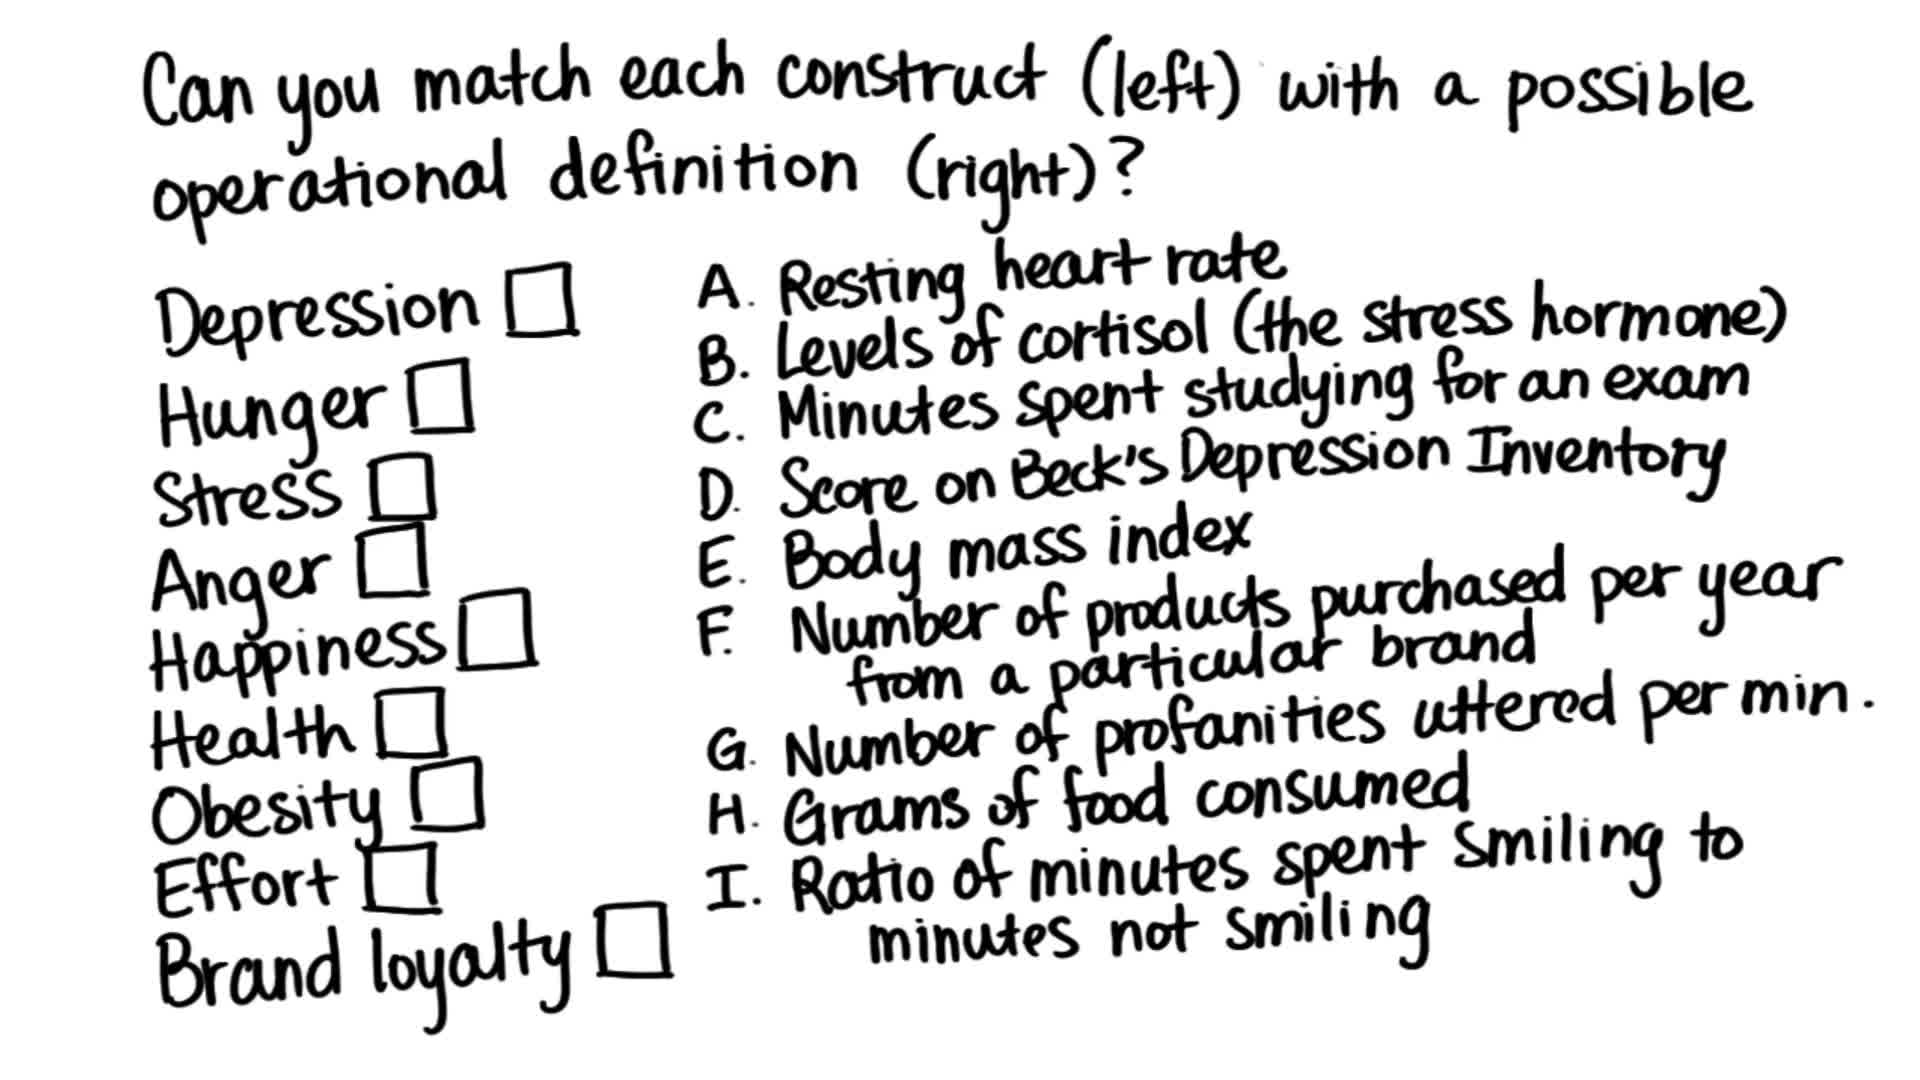 Can you match each construct (left) with a possible
operational definition (right)?
Depression
Hunger
Stress
Anger
Happiness
Health
Obesity
Effort
Brand loyalty
A. Resting heart rate
B. Levels of cortisol (the stress hormone)
C. Minutes spent studying for an exam
D. Score on Beck's Depression Inventory
E. Body mass index
F. Number of products purchased per year
from a particular brand
G. Number of profanities uttered per min.
H. Grams of food consumed
I. Ratio of minutes spent smiling to
minutes not smiling